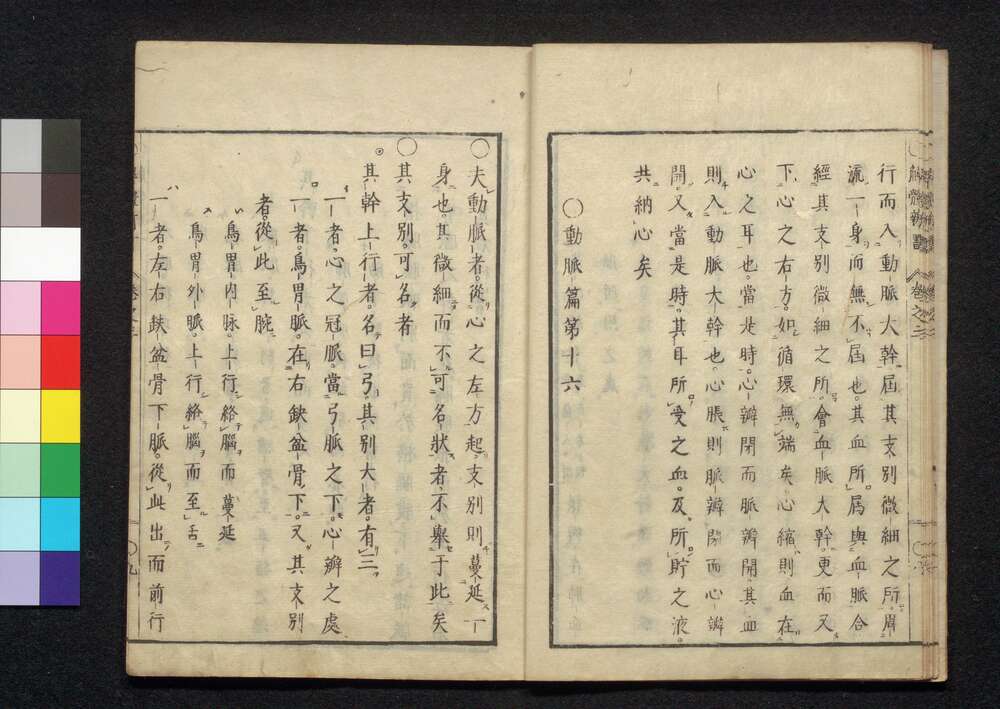 行而入動脈大幹屆其支別微細之所周
流一身而無不屆也其血所屆與血脈合
經其支別微細之所會血脈大幹更而又
下心之右方如循環無端矣心縮則血在
心之耳也當是時心瓣閉而脈瓣開其血
則入動脈大幹也心脹則脈瓣閉而心瓣
開又當是時其耳所受之血及所貯之液
共納心矣
〇動脈篇第十六
〇夫動脈者從心之左方起支別則蔓延一
身也其微細而不可名狀者不舉于此矣
〇其支別可名者
其幹上行者名曰弓其別大者有三
一者心之冠脈當弓脈之下心瓣之處
一者烏胃脈在右缺盆骨下又其支別
者從此至腕
烏胃內脉上行絡腦而蔓延
烏胃外脈上行絡腦而至舌
一者左右缺盆骨下脈從此出而前行